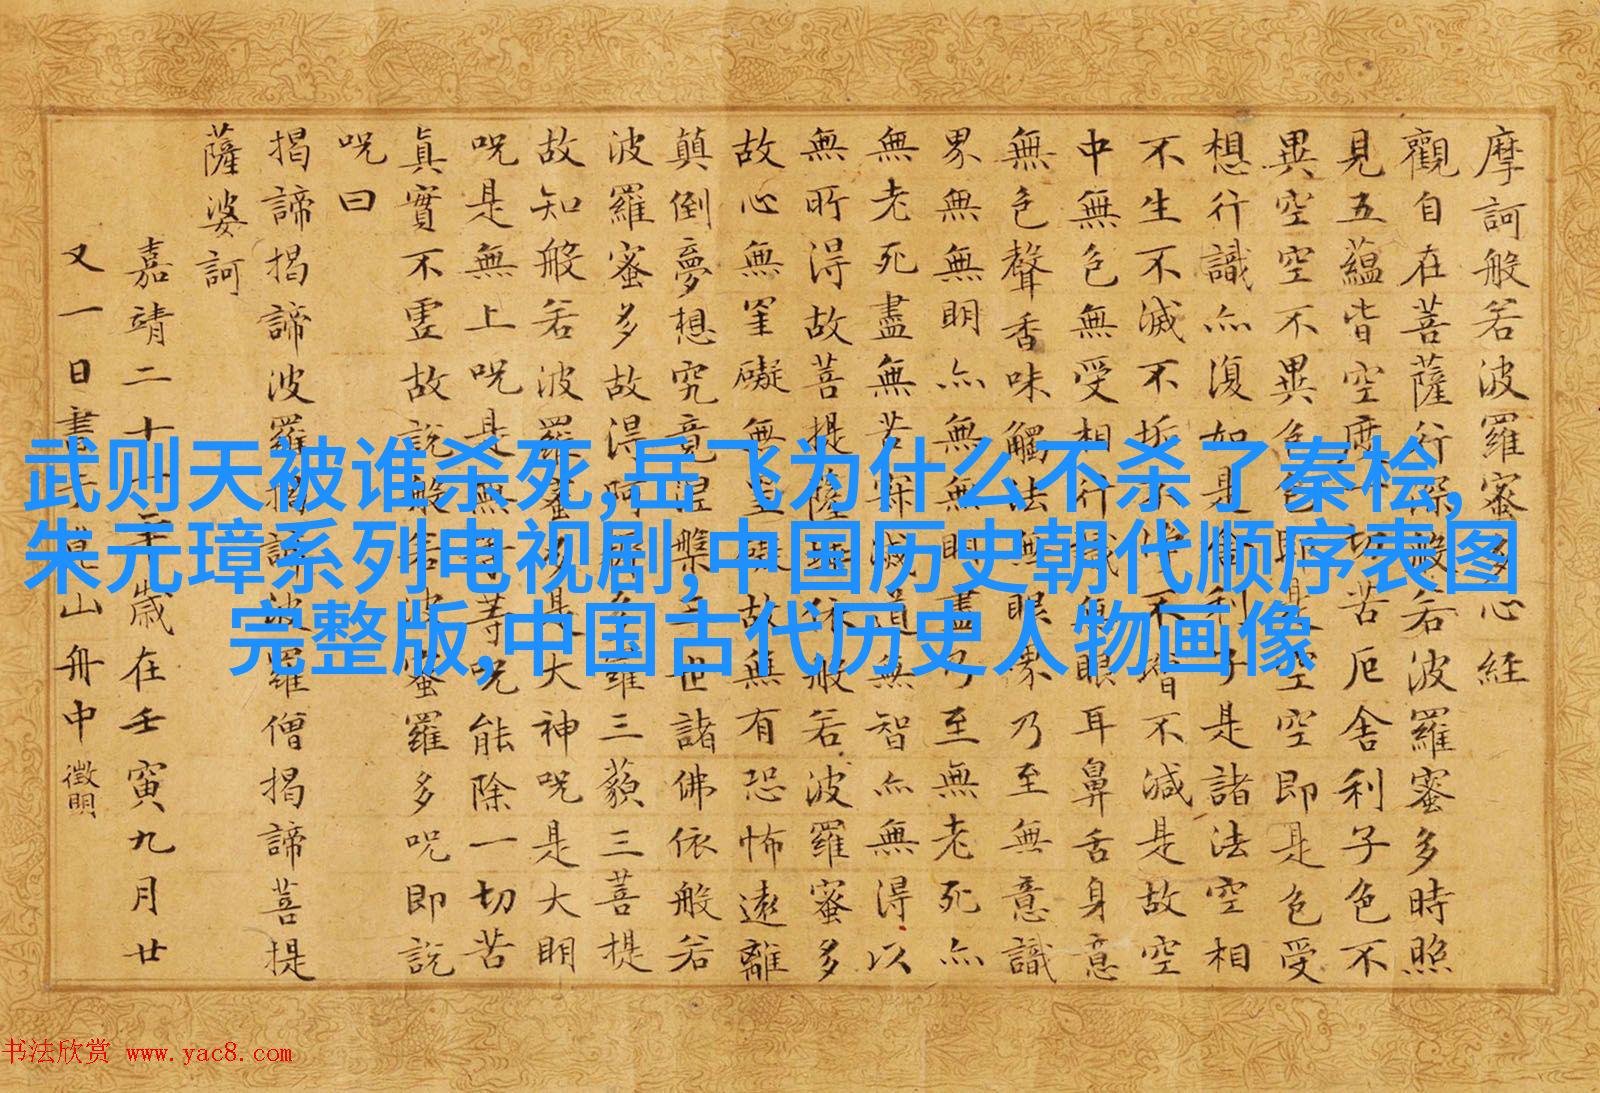 摩訶般若波羅蜜多心経
觀自在菩薩行深般若波羅蜜多時照
見五蘊皆空度一切苦厄舍利子色不
異空空不異色色即是空空即是色受
想行識亦復如是舍利子是諸法空相
不生不滅不垢不淨不增不減是故空
中無色無受相行識無眼耳鼻舌身意
無色聲香味觸法無眼界乃至無意識
界無無明亦無無明盡乃至無老死亦
無老死盡無苦寂滅道無智亦無得以
無所得故菩提薩埵依般若波羅蜜多
故心無罣礙無罣礙故無有恐怖遠離
顛倒夢想究竟涅槃三世諸佛依般若
波羅蜜多故得阿耨多羅三藐三菩提
故知般若波羅蜜多是大神呪是大明
呪是無上呪是無等等呪能除一切苦
真實不虛故說般若波蜜羅多呪即說
呪曰
揭諦揭諦波羅揭諦波羅僧揭諦菩提
薩婆訶
嘉靖二十一年歲在壬寅九月廿
又一日書山舟中 徵明
武则天被谁杀死,岳飞为什么不杀了秦桧,
朱元璋系列电视剧,中国历史朝代顺序表图
完整版,中国古代历史人物画像
书法欣赏 www.yac8.com